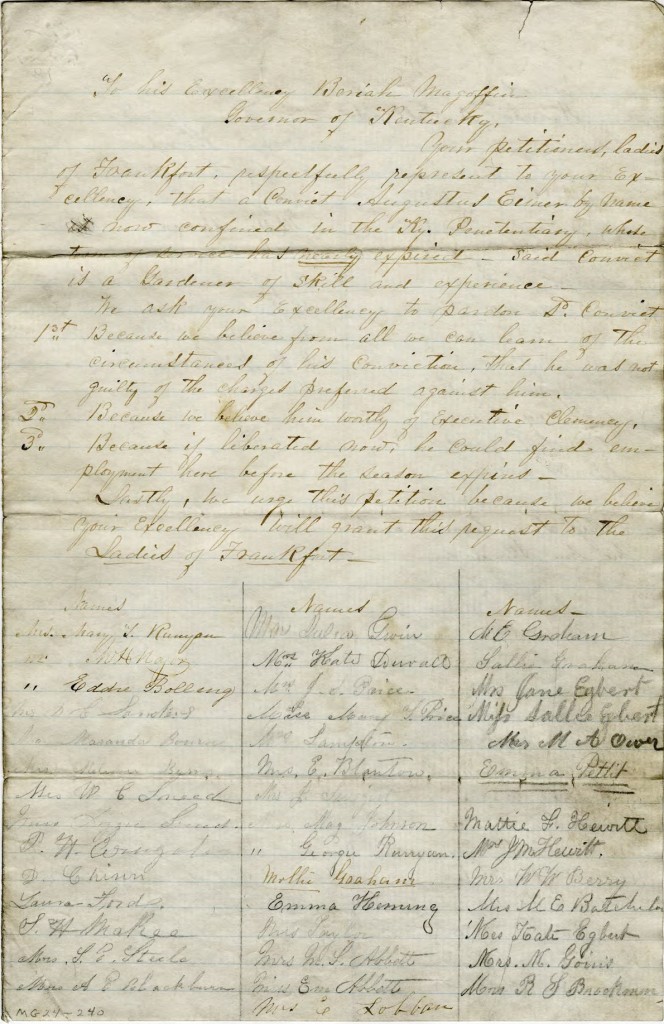 To his Excellency Beriah Magoffin
Governor of Kentucky,
Your petitioners, ladies
of Frankfort, respectfully represent to your Ex-
cellency, that a Convict Augustus Eisner by name
now confined in the Ky. Penitentiary, whose
of service has nearly expired - Said Convict
is a Gardener of Skill and experience -
We ask your Excellency to pardon Sd. Convict
1st Because we believe from all we can learn of the
circumstances of his Conviction, that he was not
guilty of the charges preferred against him.
2" Because we believe him worthy of Executive Clemency,
3" Because if liberated now, he could find em-
ployment here before the season expires -
Lastly, we urge this petition because we believe
your Excellency will grant this request to the
Ladies of Frankfort -
Names
Mrs. Mary T. Runyan
" Eddie Bolling
Mrs W C Sneed
D. Chinn
Laura Ford.
S H Makee
Mrs. S. E. Steele
Mrs A E Blackburn
Names
Gwin
Mrs Kate Duvall
Mrs J. S. Price
Miss Mary T. Price
Mrs Lampton
Mrs. E. Blanton,
Mag Johnson
" Georgie Runyan.
Mollie Graham
Emma Heming
Mrs Taylor
Mrs M. S. Abbett
Miss Eva Abbett
Mrs E Lobban
Names -
M E Graham
Sallie Graham
Mrs Jane Egbert
Miss Sallie Egbert
Mrs M A Owen
Emma Pettit
Mattie F. Hewitt
Mrs J M Hewitt.
Mrs W W Berry
Mrs M E Batchelor
Miss Kate Egbert
Mrs. M. Goins
Mrs R S Brockman
MG24-240